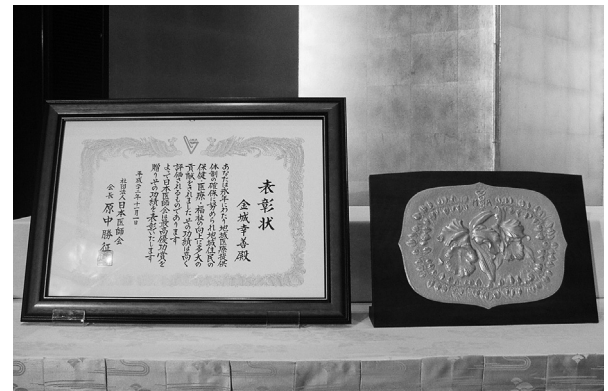 表彰状
金城幸善殿
あなたは永年にわたり地域医療提供
体制の確保に努められ地域住民の
保健・医療・福祉の向上に多大の
貢献をされましたその功績は高く
評価されるものであります
よって日本医師会は最高優功賞を
贈りその功績を表彰いたします
平成二十二年十一月一日
社団法人日本医師会
会長 原中勝征